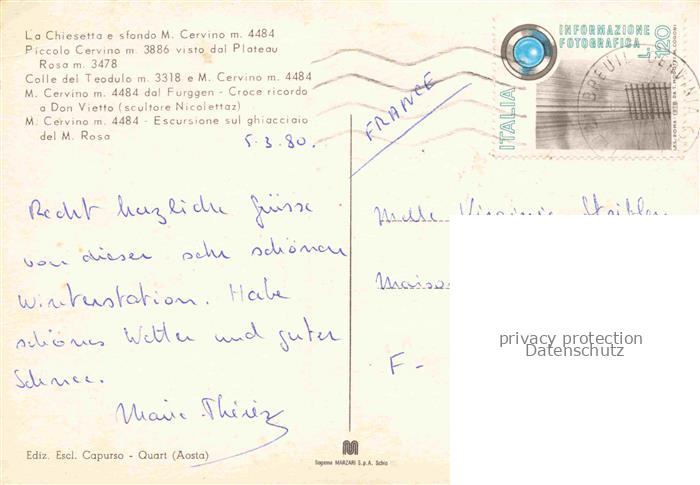 La Chiesetta e sfondo M. Cervino m. 4484
Piccolo Cervino m. 3886 visto dal Plateau
Rosa m. 3478
Colle del Teodulo m. 3318 e M. Cervino m. 4484
M. Cervino m. 4484 dal Furggen - Croce ricordo
a Don Vietto (scultore Nicolettaz)
M. Cervino m. 4484 - Escursione sul ghiacciaio
del M. Rosa
5.3.80.
FRANCE
INFORMAZIONE
FOTOGRAFICA
L. 120
ITALIA
BREUIL
Recht herzliche Grüsse
von dieser sehr schönen
Winterstation. Habe
schönes Wetter und guten
Schnee.
Marie-Thérèse
Melle Virginie
Maison
F-
privacy protection
Datenschutz
Ediz. Escl. Capurso - Quart (Aosta)
Sagome MARZARI S.p.A. Schio